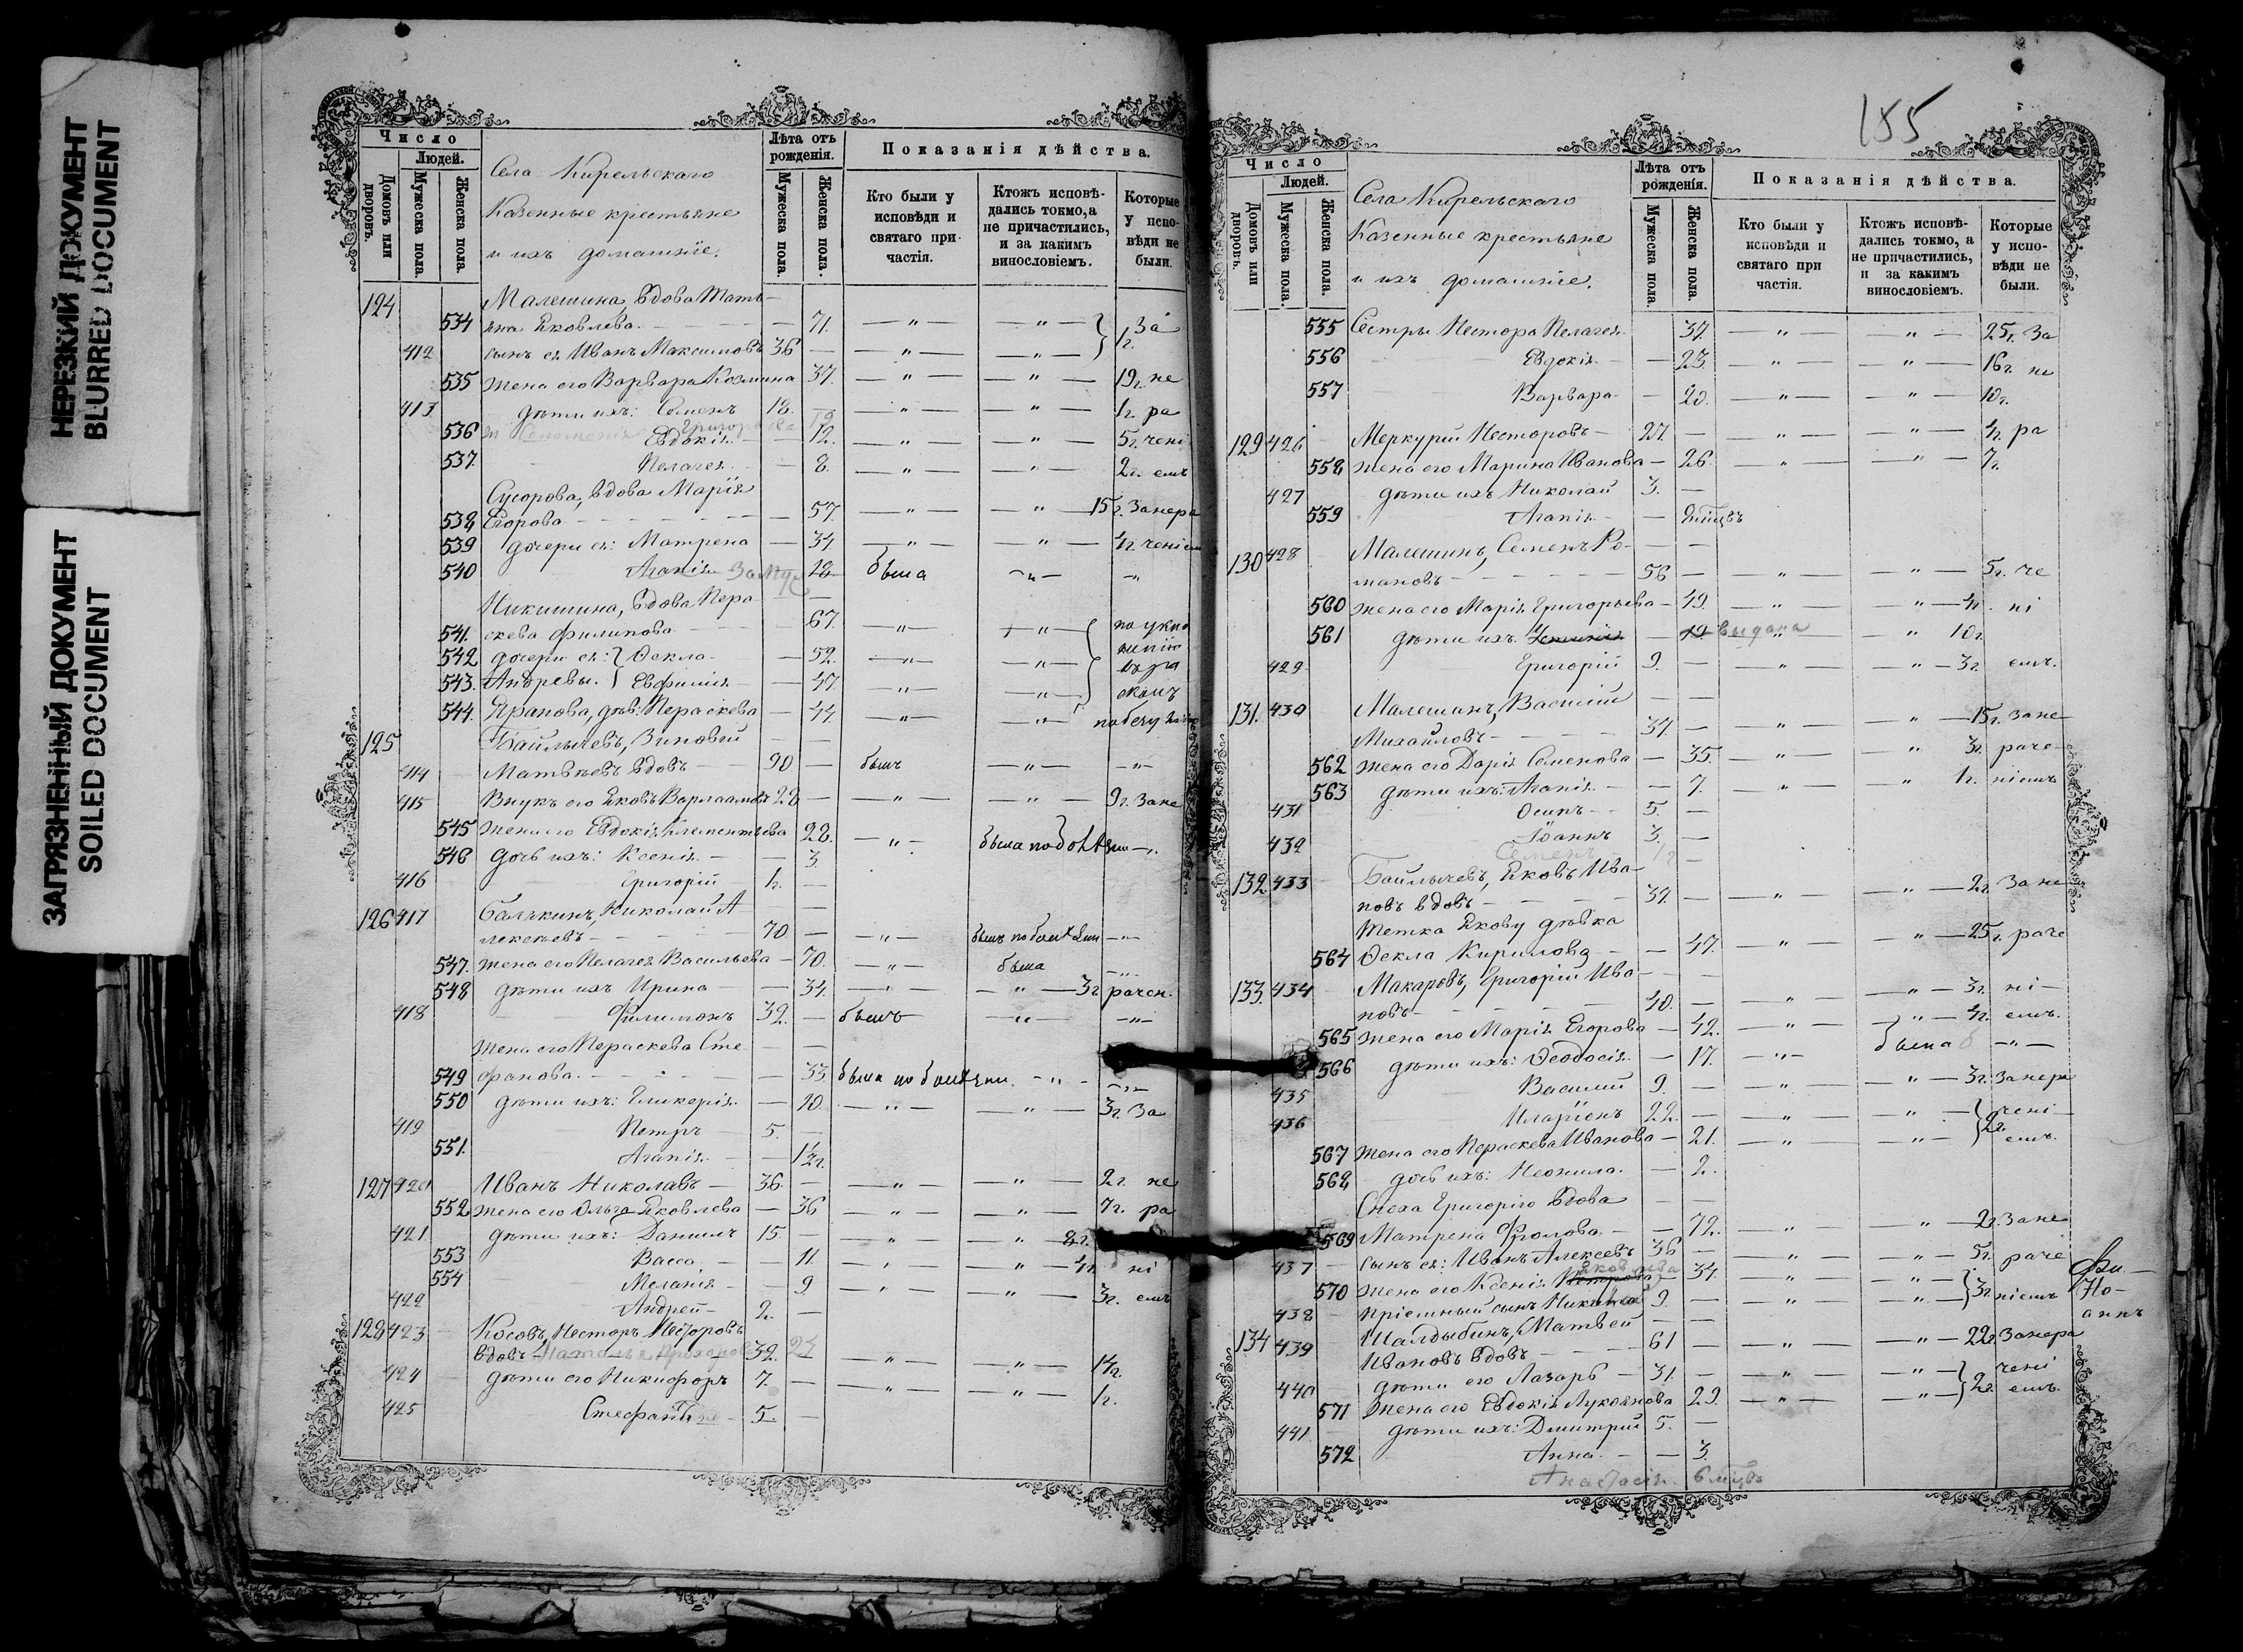 НЕРЕЗКИЙ ДОКУМЕНТ
BLURRED DOCUMENT
ЗАГРЯЗНЕННЫЙ ДОКУМЕНТ
SOILED DOCUMENT
Число
Людей.
Домовъ или дворовъ.
Мужеска пола.
Женска пола.
Села Кирельскаго
Казенные крестьяне
и ихъ домашніе.
Лѣта отъ рожденія.
Мужеска пола.
Женска пола.
Показанія дѣйства.
Кто были у исповѣди и святаго при частія.
Ктожъ исповѣ- дались токмо, а не причастились, и за какимъ винословіемъ.
Которые у испо- вѣди не были.
124 Малешина, вдова Татья-
534 на Яковлева 71. — " — — " — За
412 сынъ ея Иванъ Максимовъ 36 — — " — — " — 1г.
535 жена его Варвара Козмина 37. — " — — " — 19г. не
413 дѣти ихъ: Семенъ 18. — " — — " — 1г. ра
536 Евдокія — 12. — " — — " — 5г. чені
537. Пелагея — 8. — " — — " — 2г. емъ
Сусорова, вдова Марія
538 Егорова — 57. — " — — " — 15г. Занера
539 дочери ея: Матрена — 34. — " — — " — 4г. ченіем
540 Агапія 18 была — " — — " —
Никишина, вдова Пера
541. скева Филипова 67. — " — — " —
542 дочери ея: Ѳекла — 52. — " — — " —
543. Андревы. Евфимія — 47. — " — — " —
544. Ярапова, дѣв: Пераскева — 44. — " — — " —
125 Байлычевъ, Зиновей — —
414 Матвѣевъ вдовъ — 90 — былъ — " — — " —
415 Внукъ его Яковъ Варлаамовъ 28 — — " — — " — 9г. Зане
545 жена его Евдокія Клементьева 28. — " —
546 дочь ихъ: Ксенія — — 3
416 Григорій 1г. —
126 417 Балякинъ, Николай А — —
лексѣевъ — 70 — — " — — " —
547. жена его Пелагея Васильева — 70. — " — была — " —
548 дѣти ихъ Ирина — — 34. — " — — " — 3г рачен.
418 Филимонъ 32. — былъ — " — — " —
жена его Пераскева Сте — —
549 фанова. — 33. была — " — — " —
550 дѣти ихъ: Гликерія — 10. — " — — " — 3г. За
419 Петръ — 5. —
551. Агапія — 1½г.
127 420 Иванъ Николавъ — 36. — — " — — " — 2г. не
552 жена его Ольга Яковлева — 36 — " — — " — 7г. ра
421 дѣти ихъ: Даниилъ 15. — — " — — " — 8г.
553 Васса — 11. — " — — " — 4г. ні
554 Меланія — 9 — " — — " — 3г. емъ
422 Андрей — 2. —
128 423 Косовъ, Несторъ Несторовъ
вдовъ 32. — " — — " — 14г.
424 дѣти его Никифоръ 7. — — " — — " — 1г.
425 Стефанъ 5 —
155
Число
Людей.
Домовъ или дворовъ.
Мужеска пола.
Женска пола.
Села Кирельскаго
Казенные крестьяне
и ихъ домашніе.
Лѣта отъ рожденія.
Мужеска пола.
Женска пола.
Показанія дѣйства.
Кто были у исповѣди и святаго при частія.
Ктожъ исповѣ- дались токмо, а не причастились, и за какимъ винословіемъ.
Которые у испо- вѣди не были.
555 Сестры Нестора Пелагея 37. — " — — " — 25г. За
556 Евдокія — 23. — " — — " — 16г. не
557 Варвара — 20. — " — — " — 10г.
129 426 Меркурій Несторовъ — 27. — — " — — " — 4г. ра
558 жена его Марина Иванова — 26. — " — — " — 7г.
427 дѣти ихъ Николай 3. —
559 Агапія —
130 428 Малешинъ, Семенъ Ро- — —
мановъ — 56 — — " — — " — 5г. че
560 жена его Марія Григорьева — 49. — " — — " — 4г. ні
561 дѣти ихъ — 19 выдана " — " 10г.
429. Григорій 9. — — " — — " — 3г. емъ.
131. 430 Малешинъ, Василій — —
Михайловъ — 37. — — " — — " — 15г. Зане
562 жена его Дарія Семенова — 35. — " — — " 3г. раче-
563 дѣти ихъ: Агапія — — 7. — " — " 1г. ніемъ
431 Осипъ — 5. —
432 Іоаннъ 3. —
Семенъ
132 433 Байлычевъ, Яковъ Ива —
новъ вдовъ — 37. — — " — — " — 2г. Зане
Тетка Якову дѣвка
564 Ѳекла Кирилова — — 47. — " — — " — 25г. раче
133 434 Макаровъ, Григорій Ива — —
новъ — 40. — — " — — " — 3г. ні —
565 жена его Марія Егорова — 42. — " — — " — 4г. емъ.
566 дѣти ихъ: Ѳеодосія — 17. — " — была — " —
435 Василій 9. — — " — — " — 3г. Занера
436 Иларіонъ 22. — — " — — " — чені —
567 жена его Пераскева Иванова — 21. — " — — " — 2г. емъ.
568 дочь ихъ: Неонила — 2.
Сноха Григорію вдова — —
569 Матрена Фролова — — 72. — " — — " — 2г. Зане
437 сынъ ея: Иванъ Алексеевъ 36 — — " — — " — 5г. раче
570 жена его Ксенія — 34. — " — — " — 3г. ніемъ
438 пріемный сынъ Никита 9. — — " — — " —
134 439 Шалдыбинъ, Матвей — —
Ивановъ вдовъ — 61 — — " — — " — 22г. Занера
440 дѣти его Лазарь — 31. — — " — — " — чені
571 жена его Евдокія Лукоянова 29. — " — — " — 2г. емъ.
441 дѣти ихъ: Дмитрій 5. —
572 Анна — — 3.
Анастасія 6 мцвъ
Іо-
аннъ